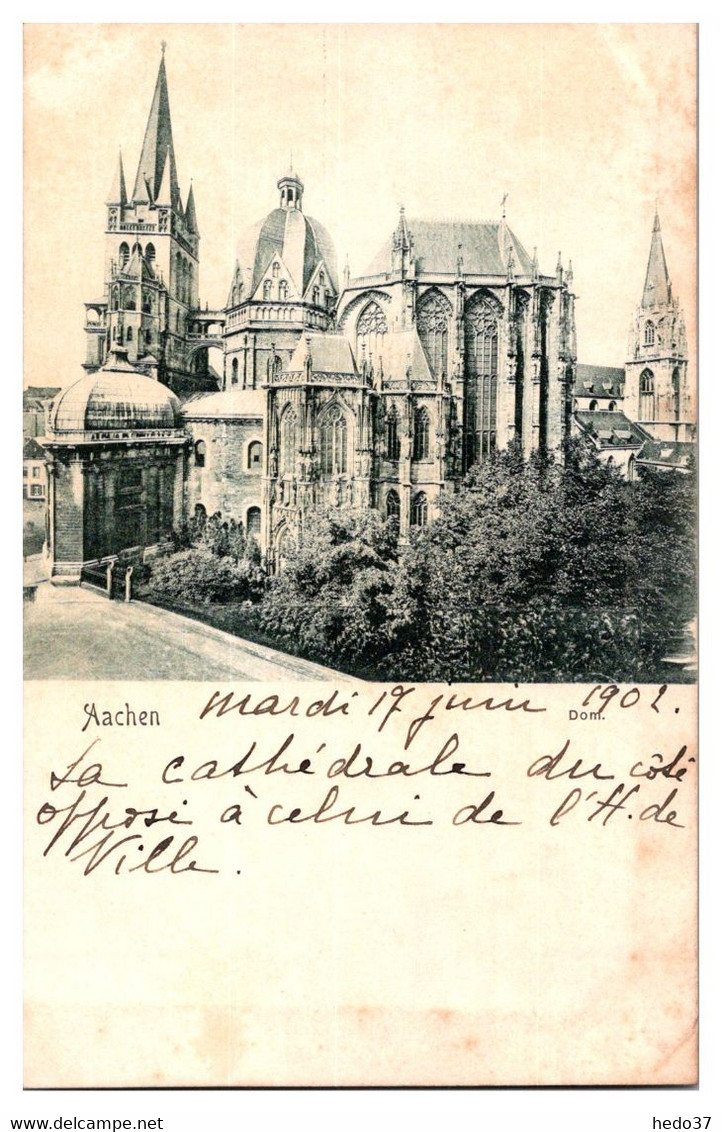 Aachen mardi 17 juin 1902. Dom.
La cathédrale du côté
opposé à celui de l'H. de
Ville.
delcampe.net
hedo37